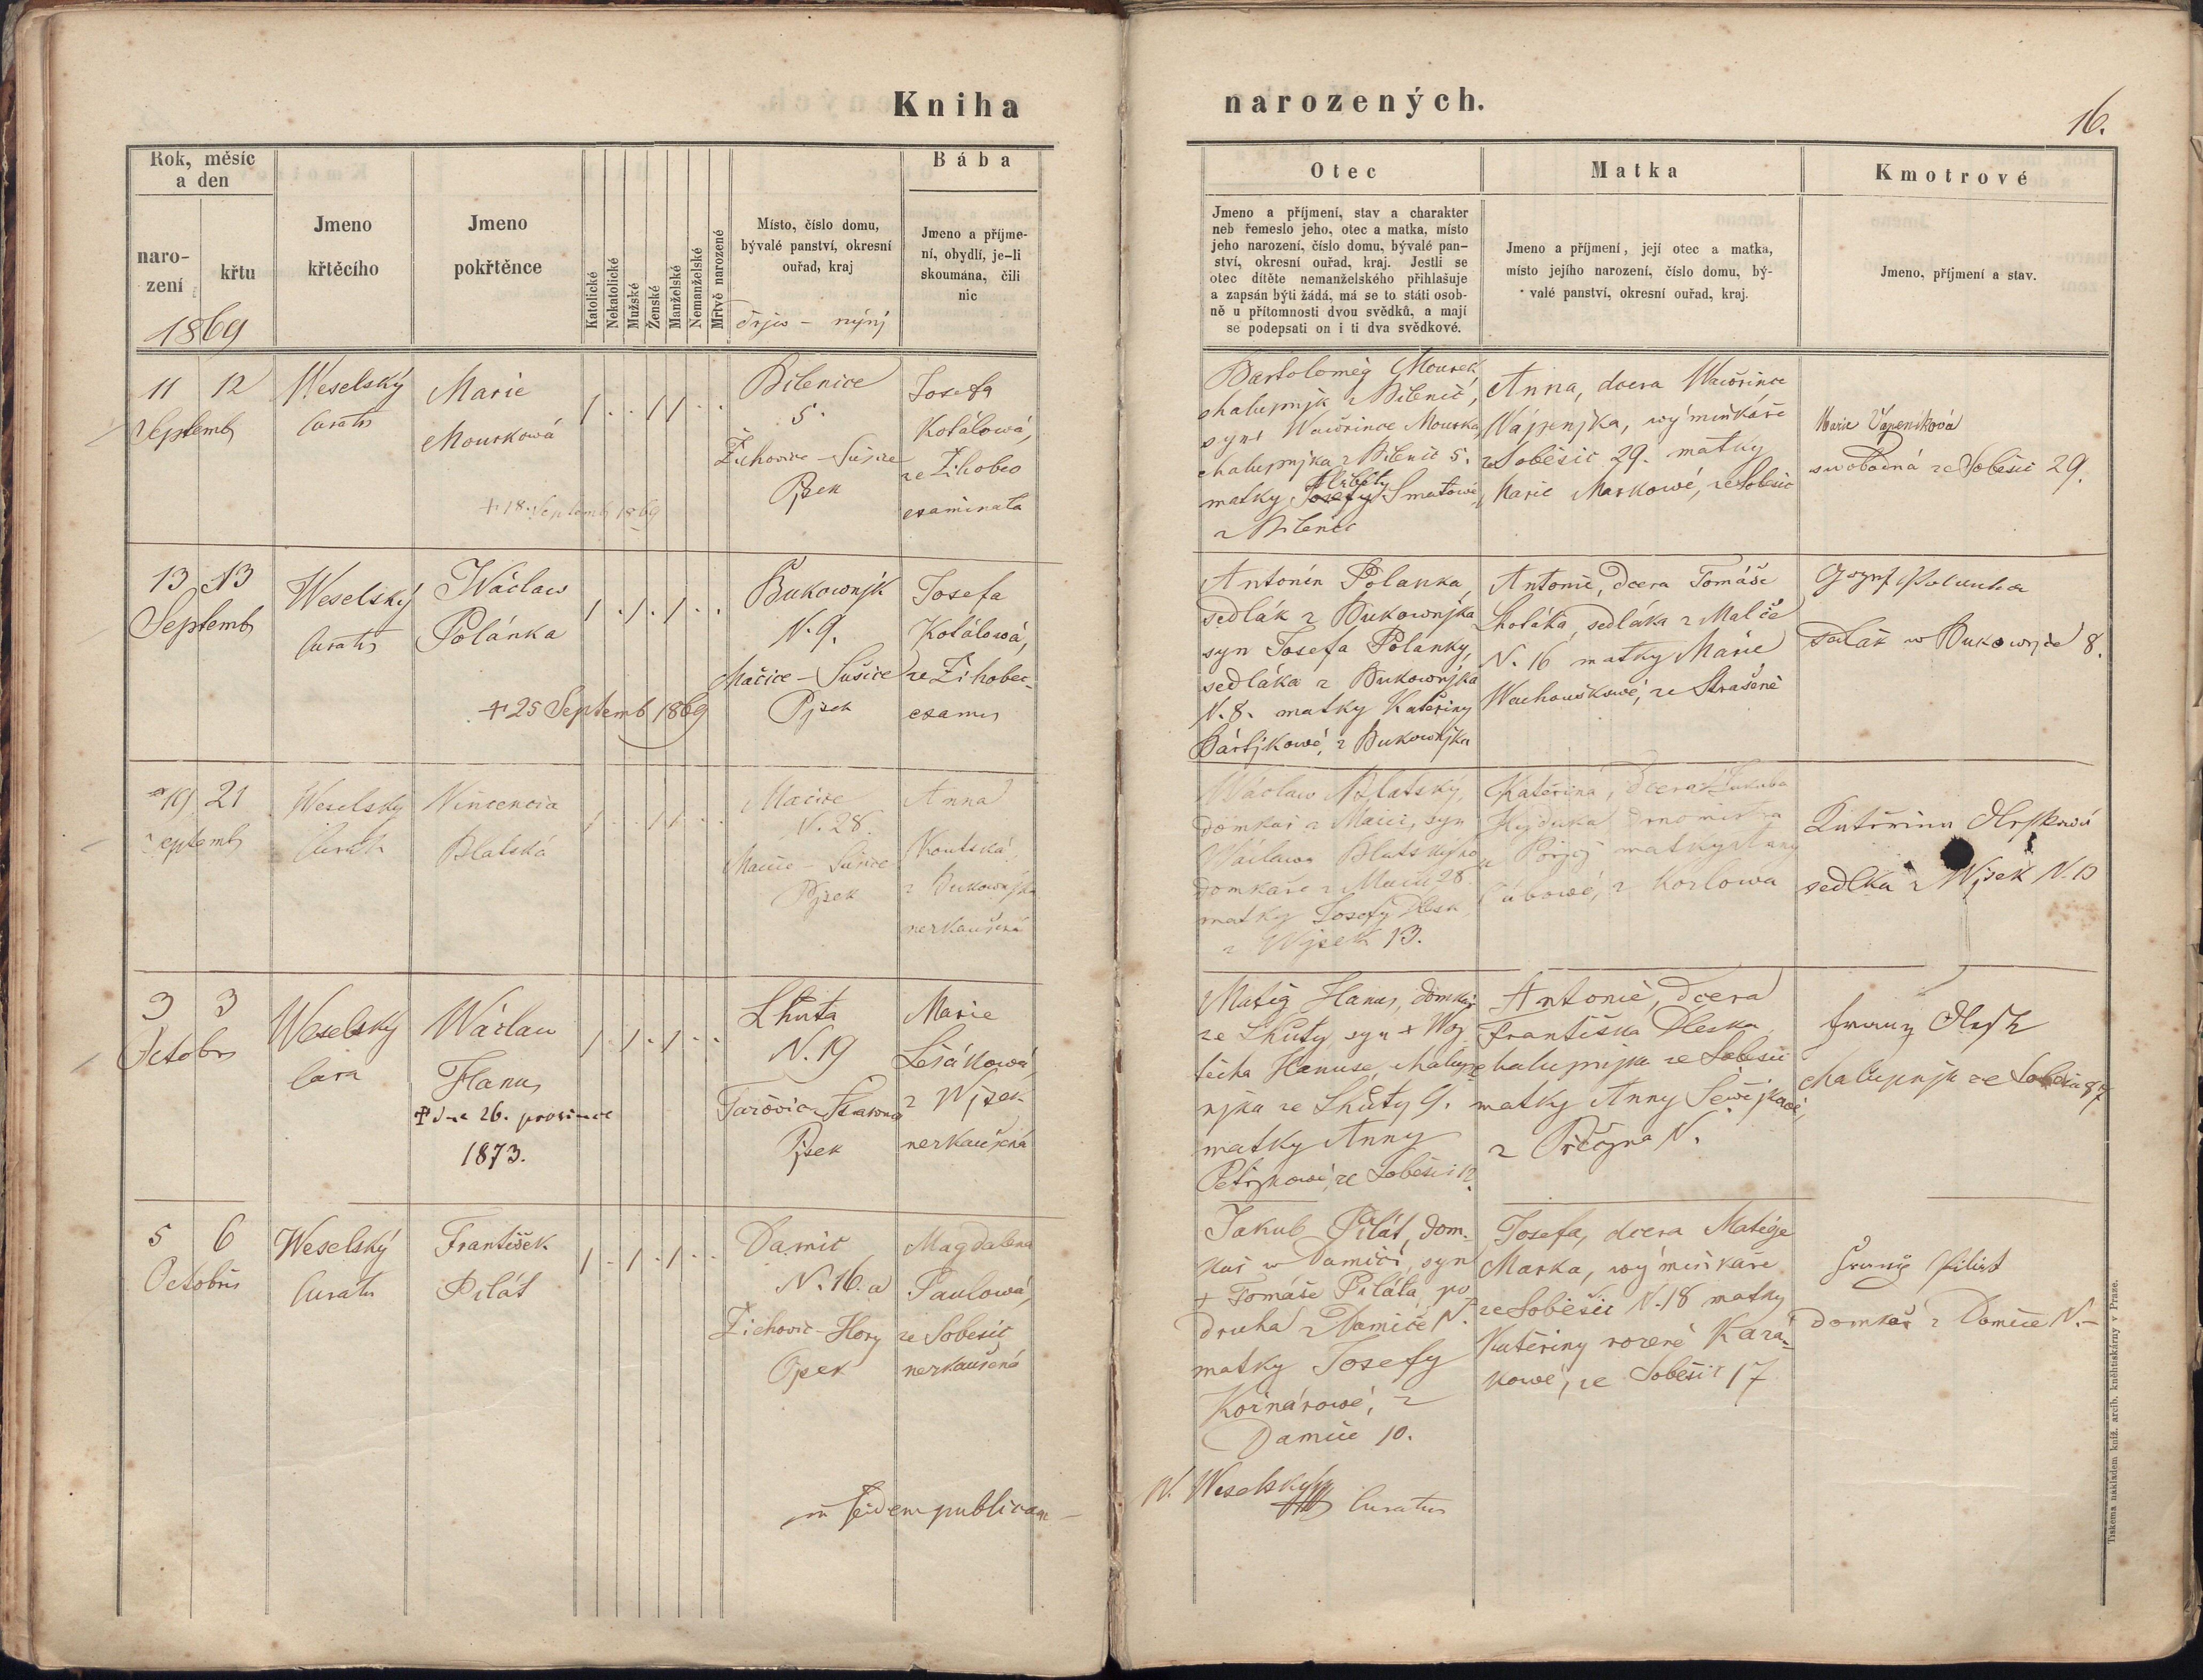 Kniha
narozených.
16.
Rok, měsíc
a den
naro-
zení
křtu
1869
Jmeno
křtěcího
Jmeno
pokřtěnce
Katolické
Nekatolické
Mužské
Ženské
Manželské
Nemanželské
Mrtvě narozené
Místo, číslo domu,
bývalé panství, okresní
ouřad, kraj
Bába
Jmeno a příjme-
ní, obydlí, je-li
skoumána, čili
nic
Otec
Jmeno a příjmení, stav a charakter
neb řemeslo jeho, otec a matka, místo
jeho narození, číslo domu, bývalé pan-
ství, okresní ouřad, kraj. Jestli se
otec dítěte nemanželského přihlašuje
a zapsán býti žádá, má se to státi osob-
ně u přítomnosti dvou svědků, a mají
se podepsati on i ti dva svědkové.
Matka
Jmeno a příjmení, její otec a matka,
místo jejího narození, číslo domu, bý-
valé panství, okresní ouřad, kraj.
Kmotrové
Jmeno, příjmení a stav.
11 12
Septemb
Weselský
Curatus
Marie
Mourková
+ 18. Septemb 1869
Bilenice
5.
Žichovice - Sušice
Pjsek
Josefa
Kotálowá,
ze Žihobec
examinata
Bartoloměg Mourek,
chalupnjk z Bilenic,
syn Wawřince Mourka,
chalupnjka z Bilenic 5.
matky Josefy Alžběty Smatowé,
z Bilenic
Anna, dcera Wawřince
Wápenjka, wýminkáře
ze Soběšic 29. matky
Marie Markowé, ze Soběšic
Marie Vápeníková
swobodná ze Soběšic 29.
13 13
Septemb
Weselský
Curatus
Wáclaw
Polánka
+ 25 Septemb 1869
Bukownjk
N. 9.
Mačice - Sušice
Pjsek
Josefa
Kotálowá,
ze Žihobec
Antonín Polanka,
sedlák z Bukownjka
syn Josefa Polanky,
sedláka z Bukownjka
N. 8. matky Kateřiny
Bártjkowé, z Bukownjka
Antonie, dcera Tomáše
Lhotáka, sedláka z Malče
N. 16 matky Marie
Wachouškowé, ze Strašené
sedlák w Bukownjce 8.
19 21
Septemb
Weselský
Curatus
Wincencia
Blatská
Mačice
N. 28.
Mačice - Sušice
Pjsek
Anna
Koutská,
z Bukownjka
nezkaušená
Wáclaw Blatský,
domkař z Mačic, syn
Wáclawa Blatského
domkáře z Mačic 28.
matky Josefy
z Wjsek 13.
Kateřina, dcera Jakuba
matky Anny
z Kozlowa
sedlka z Wjsek N. 13
3 3
Octobr
Weselský
Cura
Wáclaw
Hanus
+ dne 26. prosince
1873.
Lhuta
N. 19
Pjsek
Marie
Lešákowá,
z Wjsek
nezkaušená
Matěg Hanus, domkař
ze Lhuty, syn + Wog-
těcha Hanuse, chalup-
njka ze Lhůty 9.
matky Anny
ze Soběšic 12.
Antonie, dcera
Františka Dleska,
chalupnjka ze Soběšic
matky Anny
N.
chalupnjk ze Soběšic 87
5 6
Octobris
Weselský
Curatus
František
Pilát
Damic
N. 16. a
Žichovic - Hory
Magdalena
Paulowá,
ze Soběšic
nezkaušená
Jakub Pilát, dom-
kař w Damiči, syn
+ Tomáše Piláta, po-
druha z Damiče N.
matky Josefy
Kornárowé, z
Damiče 10.
Josefa, dcera Matěje
Marka, wýminkaře
ze Soběšic N. 18 matky
Kateřiny rozené Kará-
kowé, ze Soběšic 17
Pilát
domkař z Damice N. -
in fidem publicam
W. Weselský
Curatus
Tiskem a nákladem kníž. arcib. kněhtiskárny v Praze.